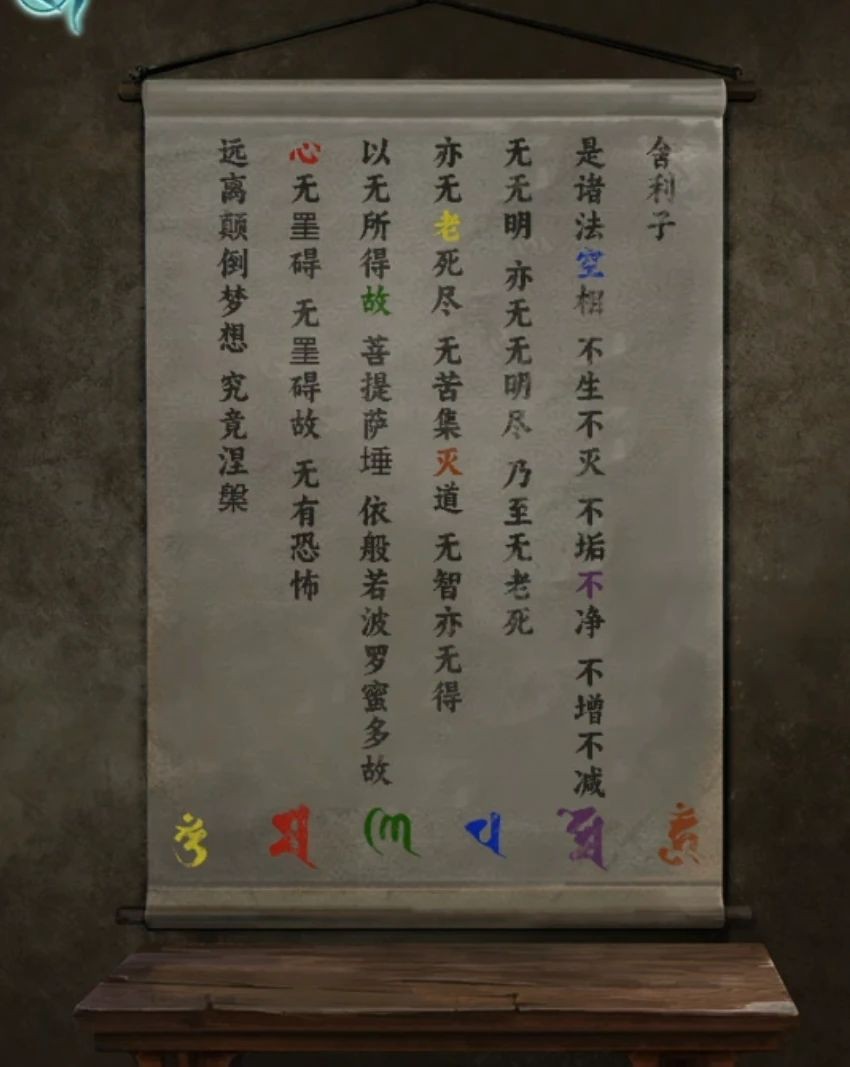 舍利子
是诸法空相 不生不灭 不垢不净 不增不减
无无明 亦无无明尽 乃至无老死
亦无老死尽 无苦集灭道 无智亦无得
以无所得故 菩提萨埵 依般若波罗蜜多故
心无罣碍 无罣碍故 无有恐怖
远离颠倒梦想 究竟涅槃